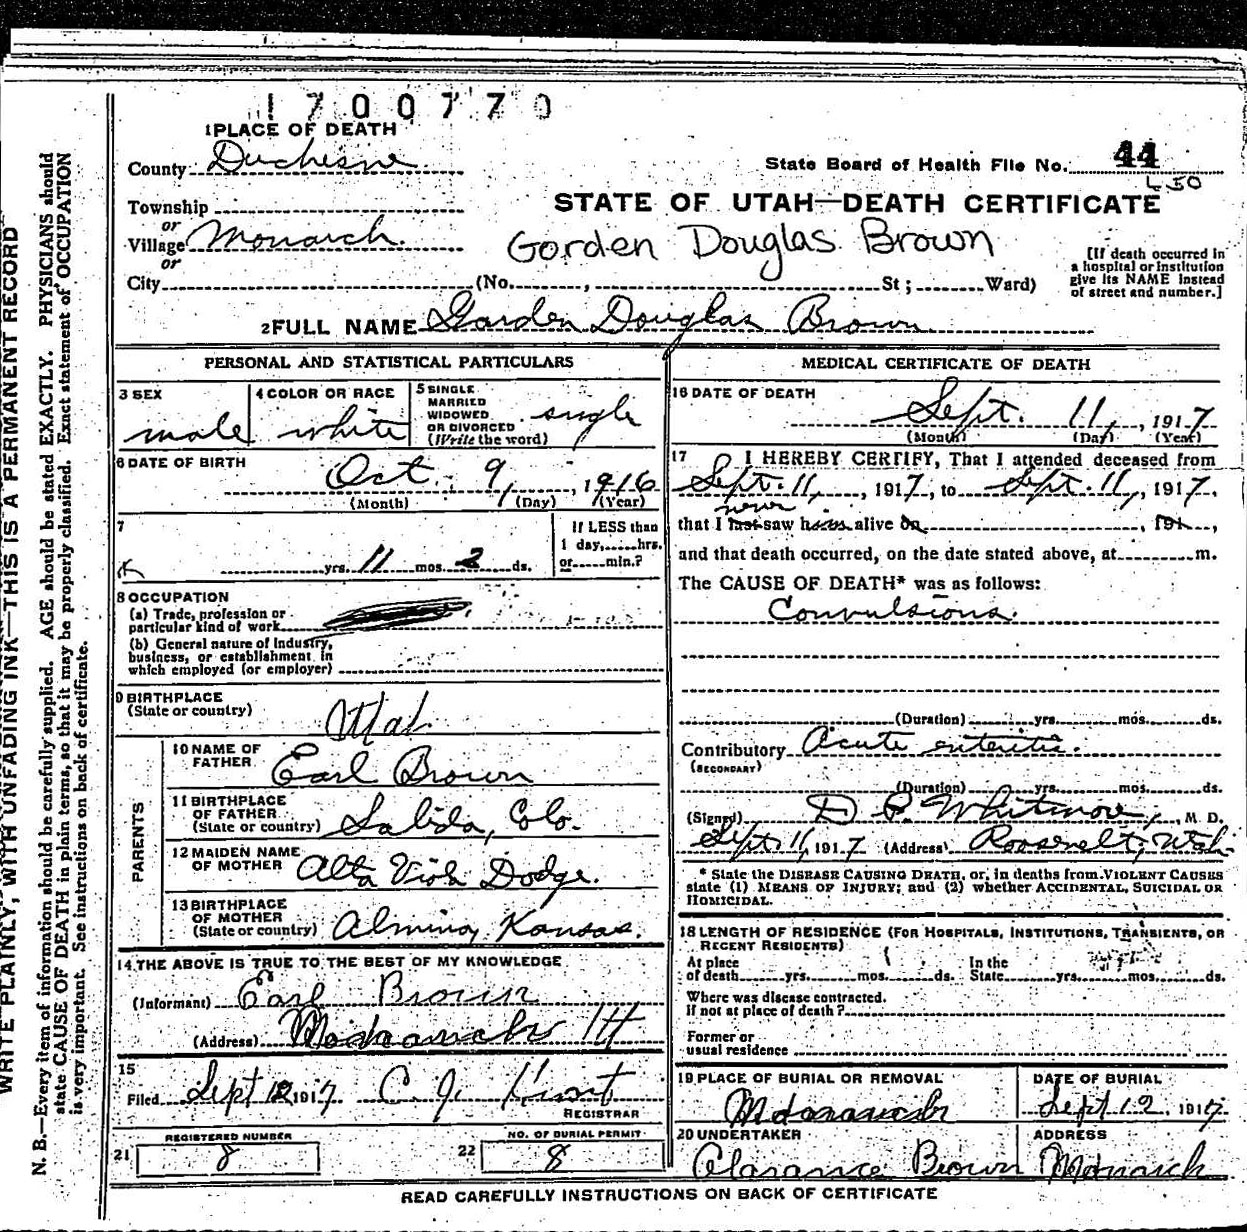 1700770
1 PLACE OF DEATH
County Duchesne
State Board of Health File No. 44
450
Township
STATE OF UTAH—DEATH CERTIFICATE
or
Village Monarch.
Gorden Douglas Brown
or
City (No. , St ; Ward)
[If death occurred in
a hospital or institution
give its NAME instead
of street and number.]
2 FULL NAME Gorden Douglas Brown
PERSONAL AND STATISTICAL PARTICULARS
3 SEX
male
4 COLOR OR RACE
white
5 SINGLE
MARRIED
WIDOWED
OR DIVORCED
(Write the word)
single
6 DATE OF BIRTH
Oct. 9, 1916
(Month) (Day) (Year)
7
yrs. 11 mos. 2 ds.
If LESS than
1 day, hrs.
or min.?
8 OCCUPATION
(a) Trade, profession or
particular kind of work
(b) General nature of industry,
business, or establishment in
which employed (or employer)
9 BIRTHPLACE
(State or country)
Utah
PARENTS
10 NAME OF
FATHER
Earl Brown
11 BIRTHPLACE
OF FATHER
(State or country) Salida, Colo.
12 MAIDEN NAME
OF MOTHER Alta Viola Dodge.
13 BIRTHPLACE
OF MOTHER
(State or country) Almina, Kansas.
14 THE ABOVE IS TRUE TO THE BEST OF MY KNOWLEDGE
(Informant) Earl Brown
(Address)
15
Filed Sept 12 1917 C. J.
REGISTRAR
REGISTERED NUMBER
21 8
NO. OF BURIAL PERMIT
22 8
MEDICAL CERTIFICATE OF DEATH
16 DATE OF DEATH
Sept. 11, 1917
(Month) (Day) (Year)
17 I HEREBY CERTIFY, That I attended deceased from
Sept. 11, 1917, to Sept. 11, 1917,
never
that I last saw him alive on , 191 ,
and that death occurred, on the date stated above, at m.
The CAUSE OF DEATH* was as follows:
Convulsions.
(Duration) yrs. mos. ds.
Contributory Acute enteritis.
(SECONDARY)
(Duration) yrs. mos. ds.
(Signed) D P. Whitmore, M. D.
Sept. 11, 1917 (Address) Roosevelt, Utah.
* State the DISEASE CAUSING DEATH, or, in deaths from VIOLENT CAUSES
state (1) MEANS OF INJURY; and (2) whether ACCIDENTAL, SUICIDAL OR
HOMICIDAL.
18 LENGTH OF RESIDENCE (FOR HOSPITALS, INSTITUTIONS, TRANSIENTS, OR
RECENT RESIDENTS)
At place
of death yrs. mos. ds.
In the
State yrs. mos. ds.
Where was disease contracted.
If not at place of death?
Former or
usual residence
19 PLACE OF BURIAL OR REMOVAL
DATE OF BURIAL
Sept 12 1917
20 UNDERTAKER
Clarance Brown
ADDRESS
Monarch
READ CAREFULLY INSTRUCTIONS ON BACK OF CERTIFICATE
WRITE PLAINLY, WITH UNFADING INK—THIS IS A PERMANENT RECORD
N. B.—Every item of information should be carefully supplied. AGE should be stated EXACTLY. PHYSICIANS should
state CAUSE OF DEATH in plain terms, so that it may be properly classified. Exact statement of OCCUPATION
is very important. See instructions on back of certificate.